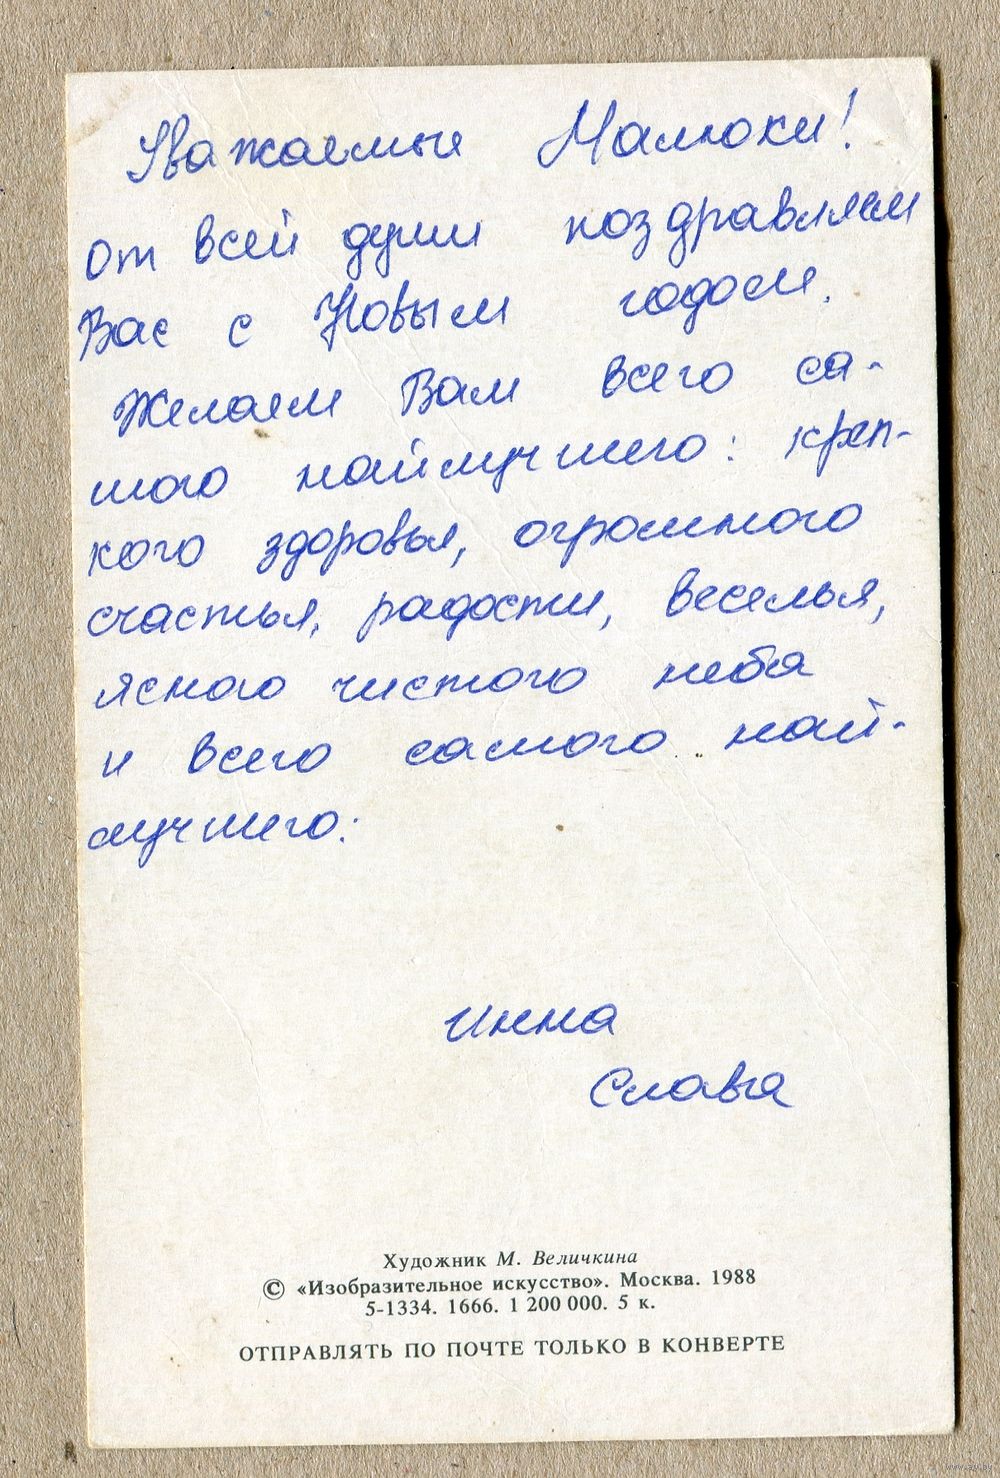 Уважаемые Малюки!
От всей души поздравляем
Вас с Новым годом.
Желаем Вам всего са-
мого наилучшего: креп-
кого здоровья, огромного
счастья, радости, веселья,
ясного чистого неба
и всего самого наи-
лучшего.
Инна
Слава
Художник М. Величкина
© «Изобразительное искусство». Москва. 1988
5-1334. 1666. 1 200 000. 5 к.
ОТПРАВЛЯТЬ ПО ПОЧТЕ ТОЛЬКО В КОНВЕРТЕ